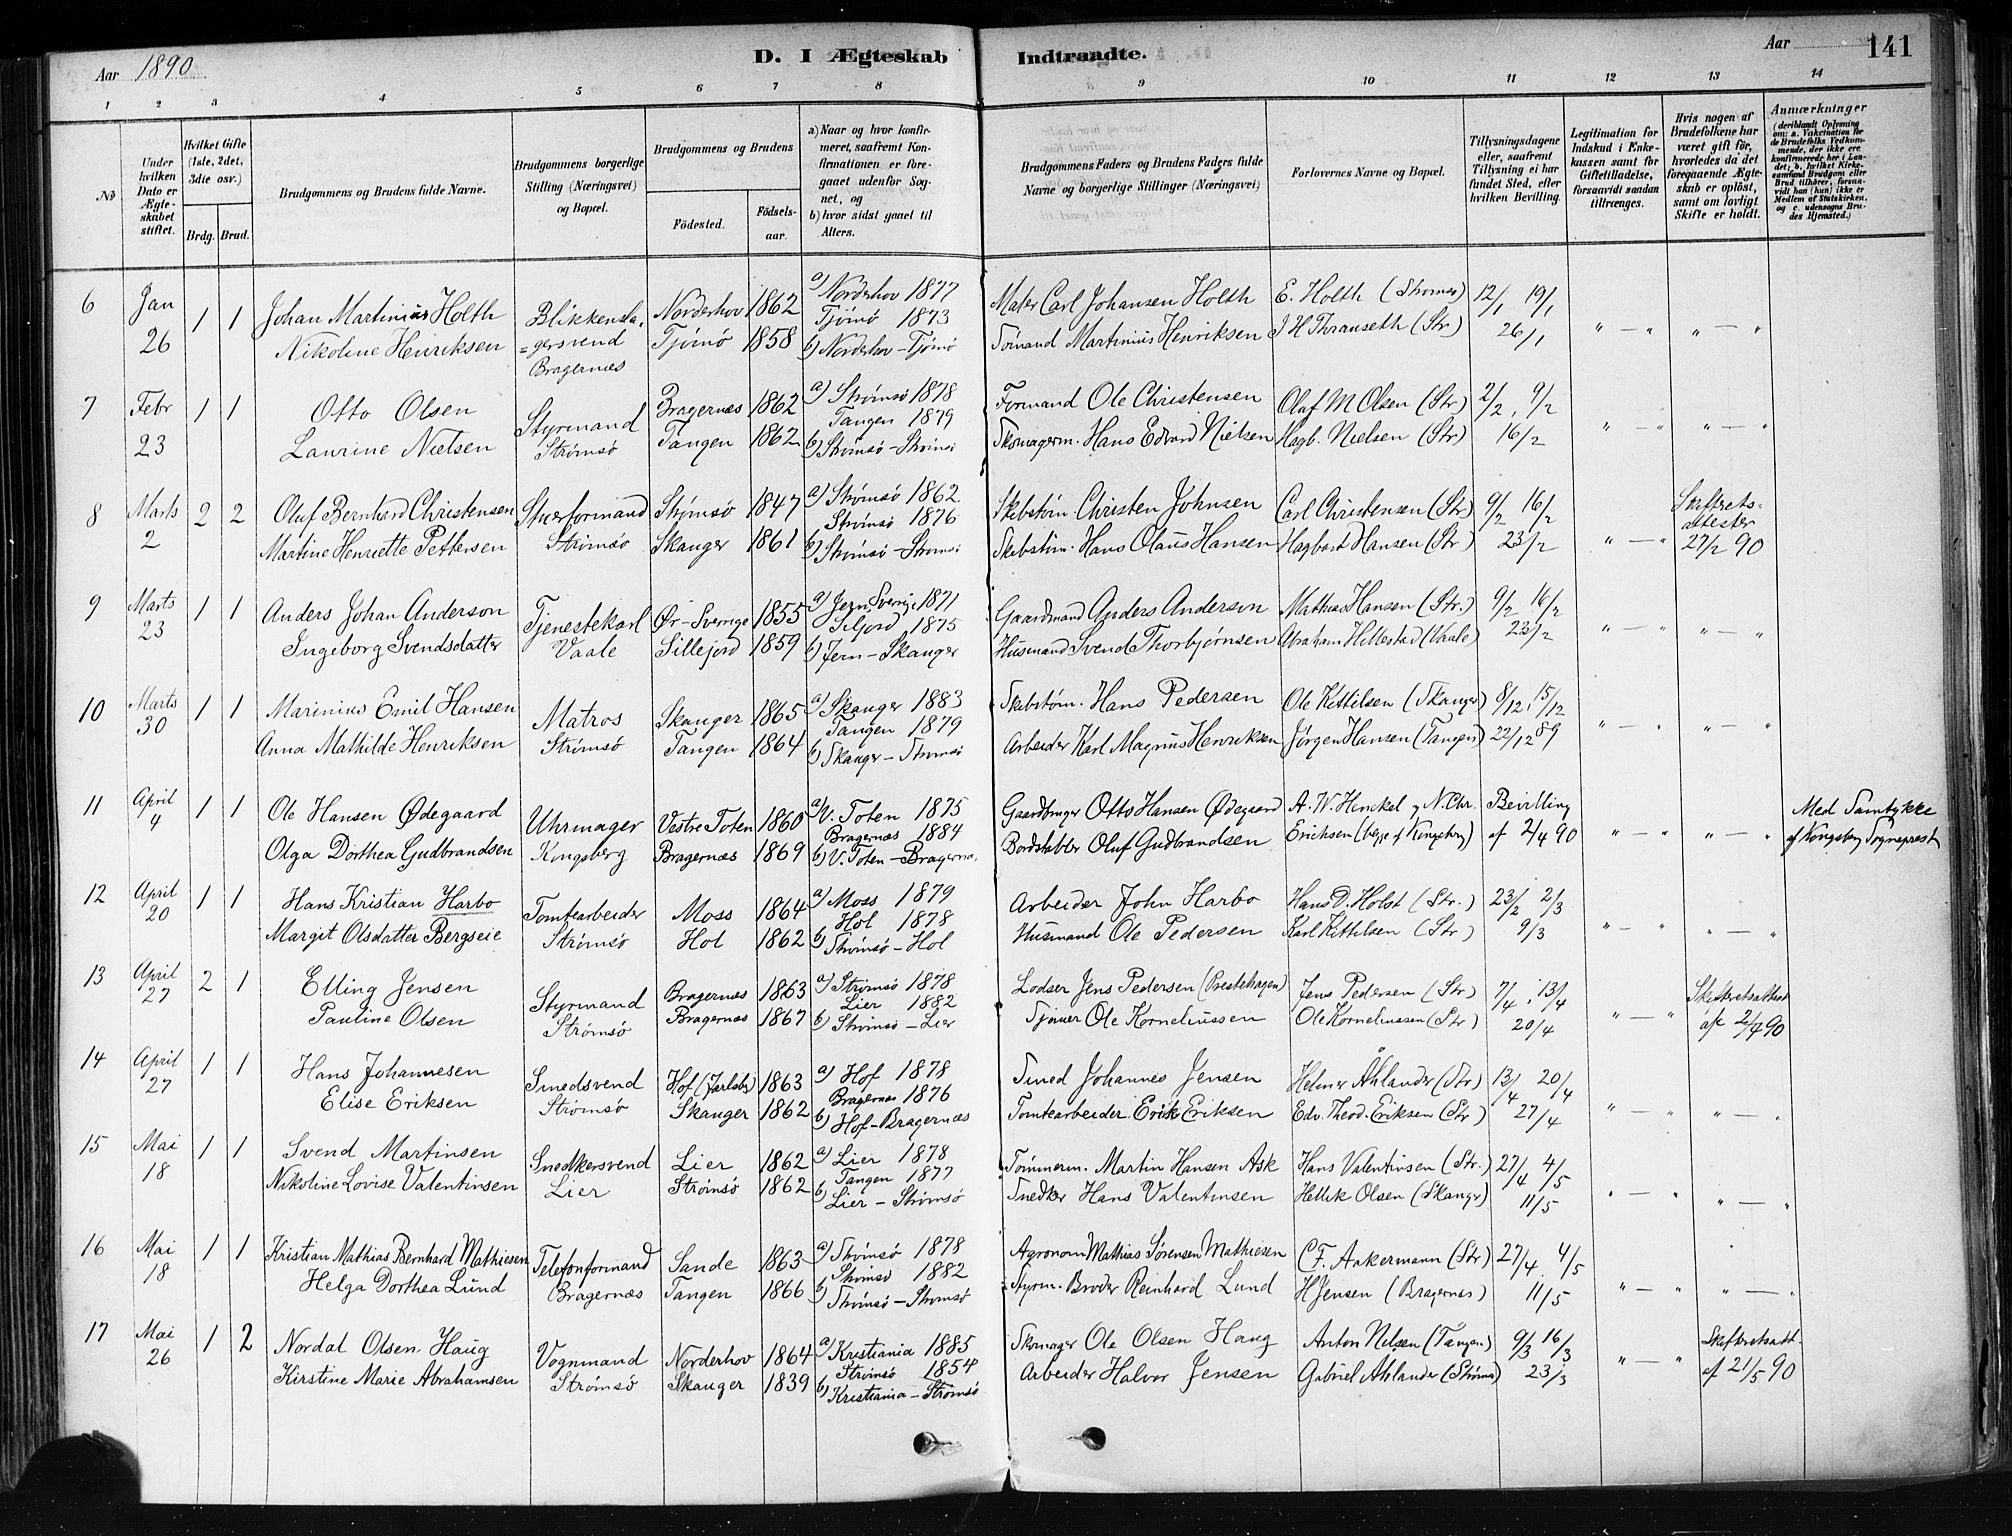 Aar 1890.
D. I Ægteskab Indtraadte.
Aar 141
1 2 3 4 5 6 7 8 8 9 10 11 12 13 14
№
Under hvilken Dato er Ægteskabet stiftet.
Hvilket Gifte (1ste, 2det, 3die osv.)
Brdg. Brud.
Brudgommens og Brudens fulde Navne.
Brudgommens borgerlige Stilling (Næringsvei) og Bopæl.
Brudgommens og Brudens
Fødested. Fødselsaar.
a) Naar og hvor konfirmeret, saafremt Konfirmationen er foregaaet udenfor Sognet, og
b) hvor sidst gaaet til Alters.
Brudgommens Faders og Brudens Faders fulde Navne og borgerlige Stillinger (Næringsvei)
Forlovernes Navne og Bopæl.
Tillysningsdagene eller, saafremt Tillysning ei har fundet Sted, efter hvilken Bevilling.
Legitimation for Indskud i Enkekassen samt for Giftetilladelse, forsaavidt saadan tiltrænges.
Hvis nogen af Brudefolkene har været gift før, hvorledes da det foregaaende Ægteskab er opløst, samt om lovligt Skifte er holdt.
Anmærkninger
(deriblandt Oplysning om: a. Vakcination for de Brudefolks Vedkommende, der ikke ere konfirmerede her i Landet; b. hvilket Kirkesamfund Brudgom eller Brud tilhører, forsaavidt han (hun) ikke er Medlem af Statskirken, og c. udensogns Brudes Hjemsted.)
6 Jan 26 1 1 Johan Martinius Holth Blikkenslagersvend Bragernæs Norderhov 1862 a) Norderhov 1877 Maler Carl Johansen Holth E. Holth (Strømsø) 12/1 19/1
Nikoline Henriksen Tjömö 1858 Tjömö 1873 b) Norderhov-Tjömö Sömand Martinius Henriksen J H Thranseth (Str) 26/1 " — " " — "
7 Febr 23 1 1 Otto Olsen Styrmand Strømsø Bragernæs 1862 a) Strømsö 1878 Formand Ole Christensen Olaf M Olsen (Str) 2/2, 9/2
Laurine Nielsen Tangen 1862 Tangen 1879 b) Strømsö-Strömsö Skomagerm. Hans Edvard Nielsen Hagb. Nielsen (Str) 16/2 " — " " — "
8 Marts 2 2 2 Oluf Bernhard Christensen Stuerformand Strømsø Strømsö 1847 a) Strømsö 1862 Skibstøm. Christen Johnsen Carl Christensen (Str) 9/2 16/2 Skiftrets-
Martine Henriette Pettersen Skauger 1861 Strömsö 1876 b) Strømsö-Strömsö Skibstøm. Hans Olaus Hansen Hagbart Hansen (Str) 23/2 " — " attester 27/2 90
9 Marts 23 1 1 Anders Johan Anderson Tjenestekarl Vaale Ør-Sverige 1855 a) Jern Sverige 1871 Gaardmand Anders Anderson Mathias Hansen (Str.) 9/2 16/2
Ingeborg Svendsdatter Sillejord 1859 Siljord 1875 b) Jern-Skauger Husmand Svend Thorbjørnsen Abraham Hillestad (Vaale) 23/2 " — " " — "
10 Marts 30 1 1 Marinius Emil Hansen Matros Strømsø Skauger 1865 a) Skauger 1883 Skibstøm. Hans Pedersen Ole Kittilsen (Skauger) 8/12, 15/12
Anna Mathilde Henriksen Tangen 1864 Tangen 1879 b) Skauger-Strømsö Arbeider Karl Magnus Henriksen Jørgen Hansen (Tangen) 22/12 89 " — " " — "
11 April 4 1 1 Ole Hansen Ødegaard Uhrmager Kongsberg Vestre Toten 1860 a) V. Toten 1875 Gaardbruger Otto Hansen Ødegaard A. W. Henckel og N. Chr. Bevilling Med Samtykke
Olga Dorthea Gudbrandsen Bragernæs 1869 Bragernæs 1884 b) V. Toten-Bragernæs Bordstabler Oluf Gudbrandsen Erichsen (begge af Kongsberg) af 2/4 90 " — " " — " af Kongsberg Sognepræst
12 April 20 1 1 Hans Kristian Harbo Tomtearbeider Strømsø Moss 1864 a) Moss 1879 Arbeider John Harbo Hans D. Holst (Str.) 23/2 2/3
Margit Olsdatter Bergseie Hol 1862 Hol 1878 b) Strømsö-Hol Husmand Ole Pedersen Karl Kittilsen (Str) 9/3 " — " " — "
13 April 27 2 1 Elling Jensen Styrmand Strømsø Bragernæs 1863 a) Strømsö 1878 Lodser Jens Pedersen (Prestehagen) Jens Pedersen (Str) 7/4, 13/4 Skiftretsattest
Pauline Olsen Bragernæs 1867 Lier 1882 b) Strømsö-Lier Tjener Ole Korneliussen Ole Korneliussen (Str) 20/4 " — " af 2/4 90
14 April 27 1 1 Hans Johannesen Smedsvend Strømsø Hof (Jarlsb) 1863 a) Hof 1878 Smed Johannes Jensen Helmer Åhlander (Str) 13/4 20/4
Elise Eriksen Skauger 1862 Bragernæs 1876 b) Hof-Bragernæs Tomtearbeider Erik Eriksen Edv. Theod. Eriksen (Str) 27/4 " — " " — "
15 Mai 18 1 1 Svend Martinsen Snedkersvend Lier Lier 1862 a) Lier 1878 Tömmerm. Martin Hansen Ask Hans Valentinsen (Str.) 27/4 4/5
Nikoline Lovise Valentinsen Strømsö 1862 Tangen 1877 b) Lier-Strømsö Snedker Hans Valentinsen Hellik Olsen (Skauger) 11/5 " — " " — "
16 Mai 18 1 1 Kristian Mathias Bernhard Mathiesen Telefonformand Bragernæs Sande 1863 a) Strömsö 1878 Agronom Mathias Sørensen Mathiesen C. F. Ackermann (Str) 27/4 4/5
Helga Dorthea Lund Tangen 1866 Strömsö 1882 b) Strömsö-Strömsö Styrm. Broder Reinhard Lund H Jensen (Bragernæs) 11/5 " — " " — "
17 Mai 26 1 2 Nordal Olsen Haug Vognmand Strømsö Norderhov 1864 a) Kristiania 1885 Skomager Ole Olsen Haug Anton Nilsen (Tangen) 9/3 16/3 Skiftretsatt.
Kirstine Marie Abrahamsen Skauger 1839 Strömsö 1854 b) Kristiania-Strømsö Arbeider Halvor Jensen Gabriel Ahlander (Strømsø) 23/3 " — " af 21/5 90